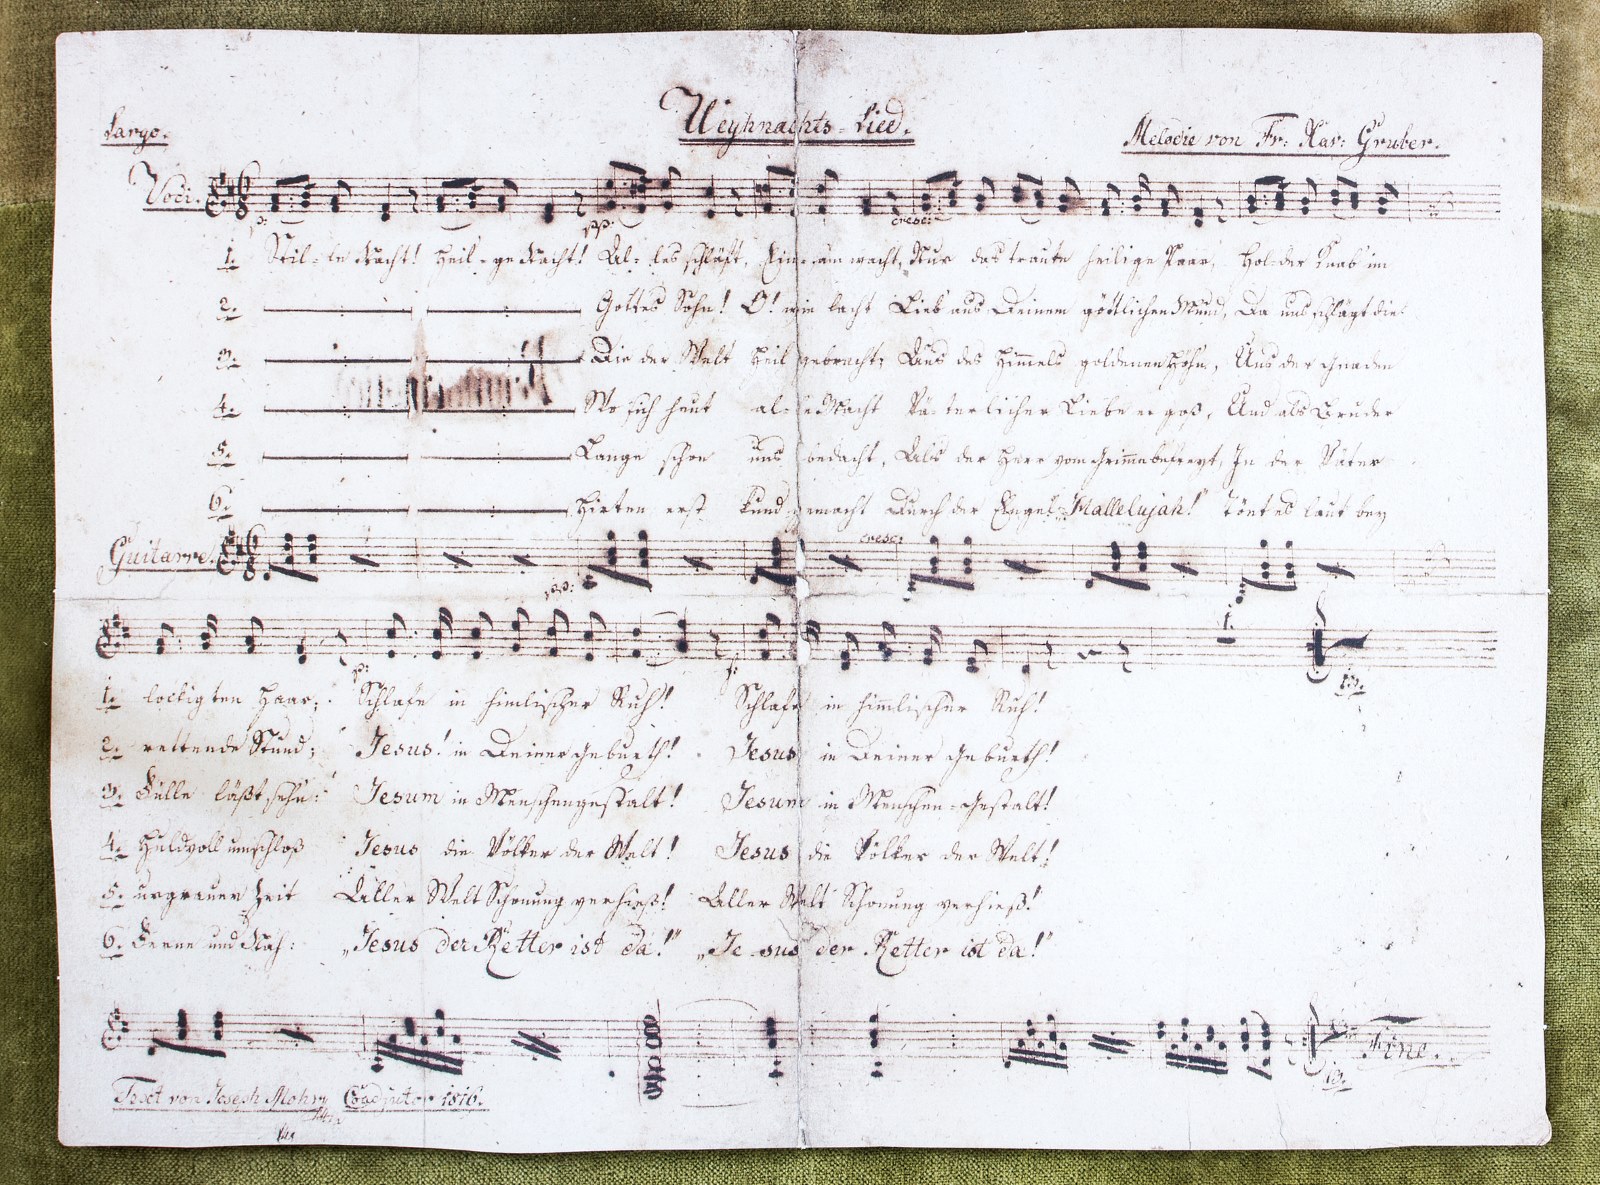 Weyhnachts-Lied.
Largo.
Melodie von Fr: Xav: Gruber.
Voci.
p: pp: cresc:
1. Stil-le Nacht! Heil-ge Nacht! Al-les schläft, Ein-sam wacht, Nur das traute heilige Paar, Hol-der Knab im
2. Gottes Sohn! O! wie lacht Lieb aus Deinem göttlichen Mund, Da uns schlägt die
3. Die der Welt Heil gebracht, Aus des Him̅els goldenen Höhn, Uns der Gnaden
4. Wo sich heut al-le Macht Vä-terlicher Liebe ergoß, Und als Bruder
5. Lange schon uns bedacht, Als der Herr vom Grim̅e befreyt, In der Väter
6. Hirten erst kund gemacht Durch der Engel „Hallelujah!" Tönt es laut bey
Guitarre.
pp: cresc:
p: f:
1. lockigten Haar; Schlafe in him̅lischer Ruh! Schlafe in him̅lischer Ruh!
2. rettende Stund; Jesus! in Deiner Geburth! Jesus in Deiner Geburth!
3. Fülle läßt sehn: Jesum in Menschengestalt! Jesum in Menschen-Gestalt!
4. Huldvoll umschloß Jesus die Völker der Welt! Jesus die Völker der Welt!
5. urgrauer Zeit Aller Welt Schonung verhieß! Aller Welt Schonung verhieß!
6. Ferne und Nah: „Jesus der Retter ist da!" „Je-sus der Retter ist da!"
Fine.
Text von Joseph Mohr Coadjutor 1816.